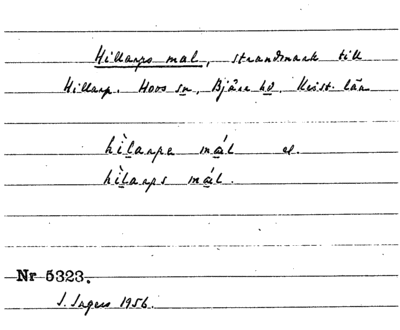 Hillarps mal, strandmark till
Hillarp. Hovs sn, Bjäre hd, Krist. län
hìlarpa mál el.
hìlarps mál.
Nr 5323.
S. Ingers 1956.